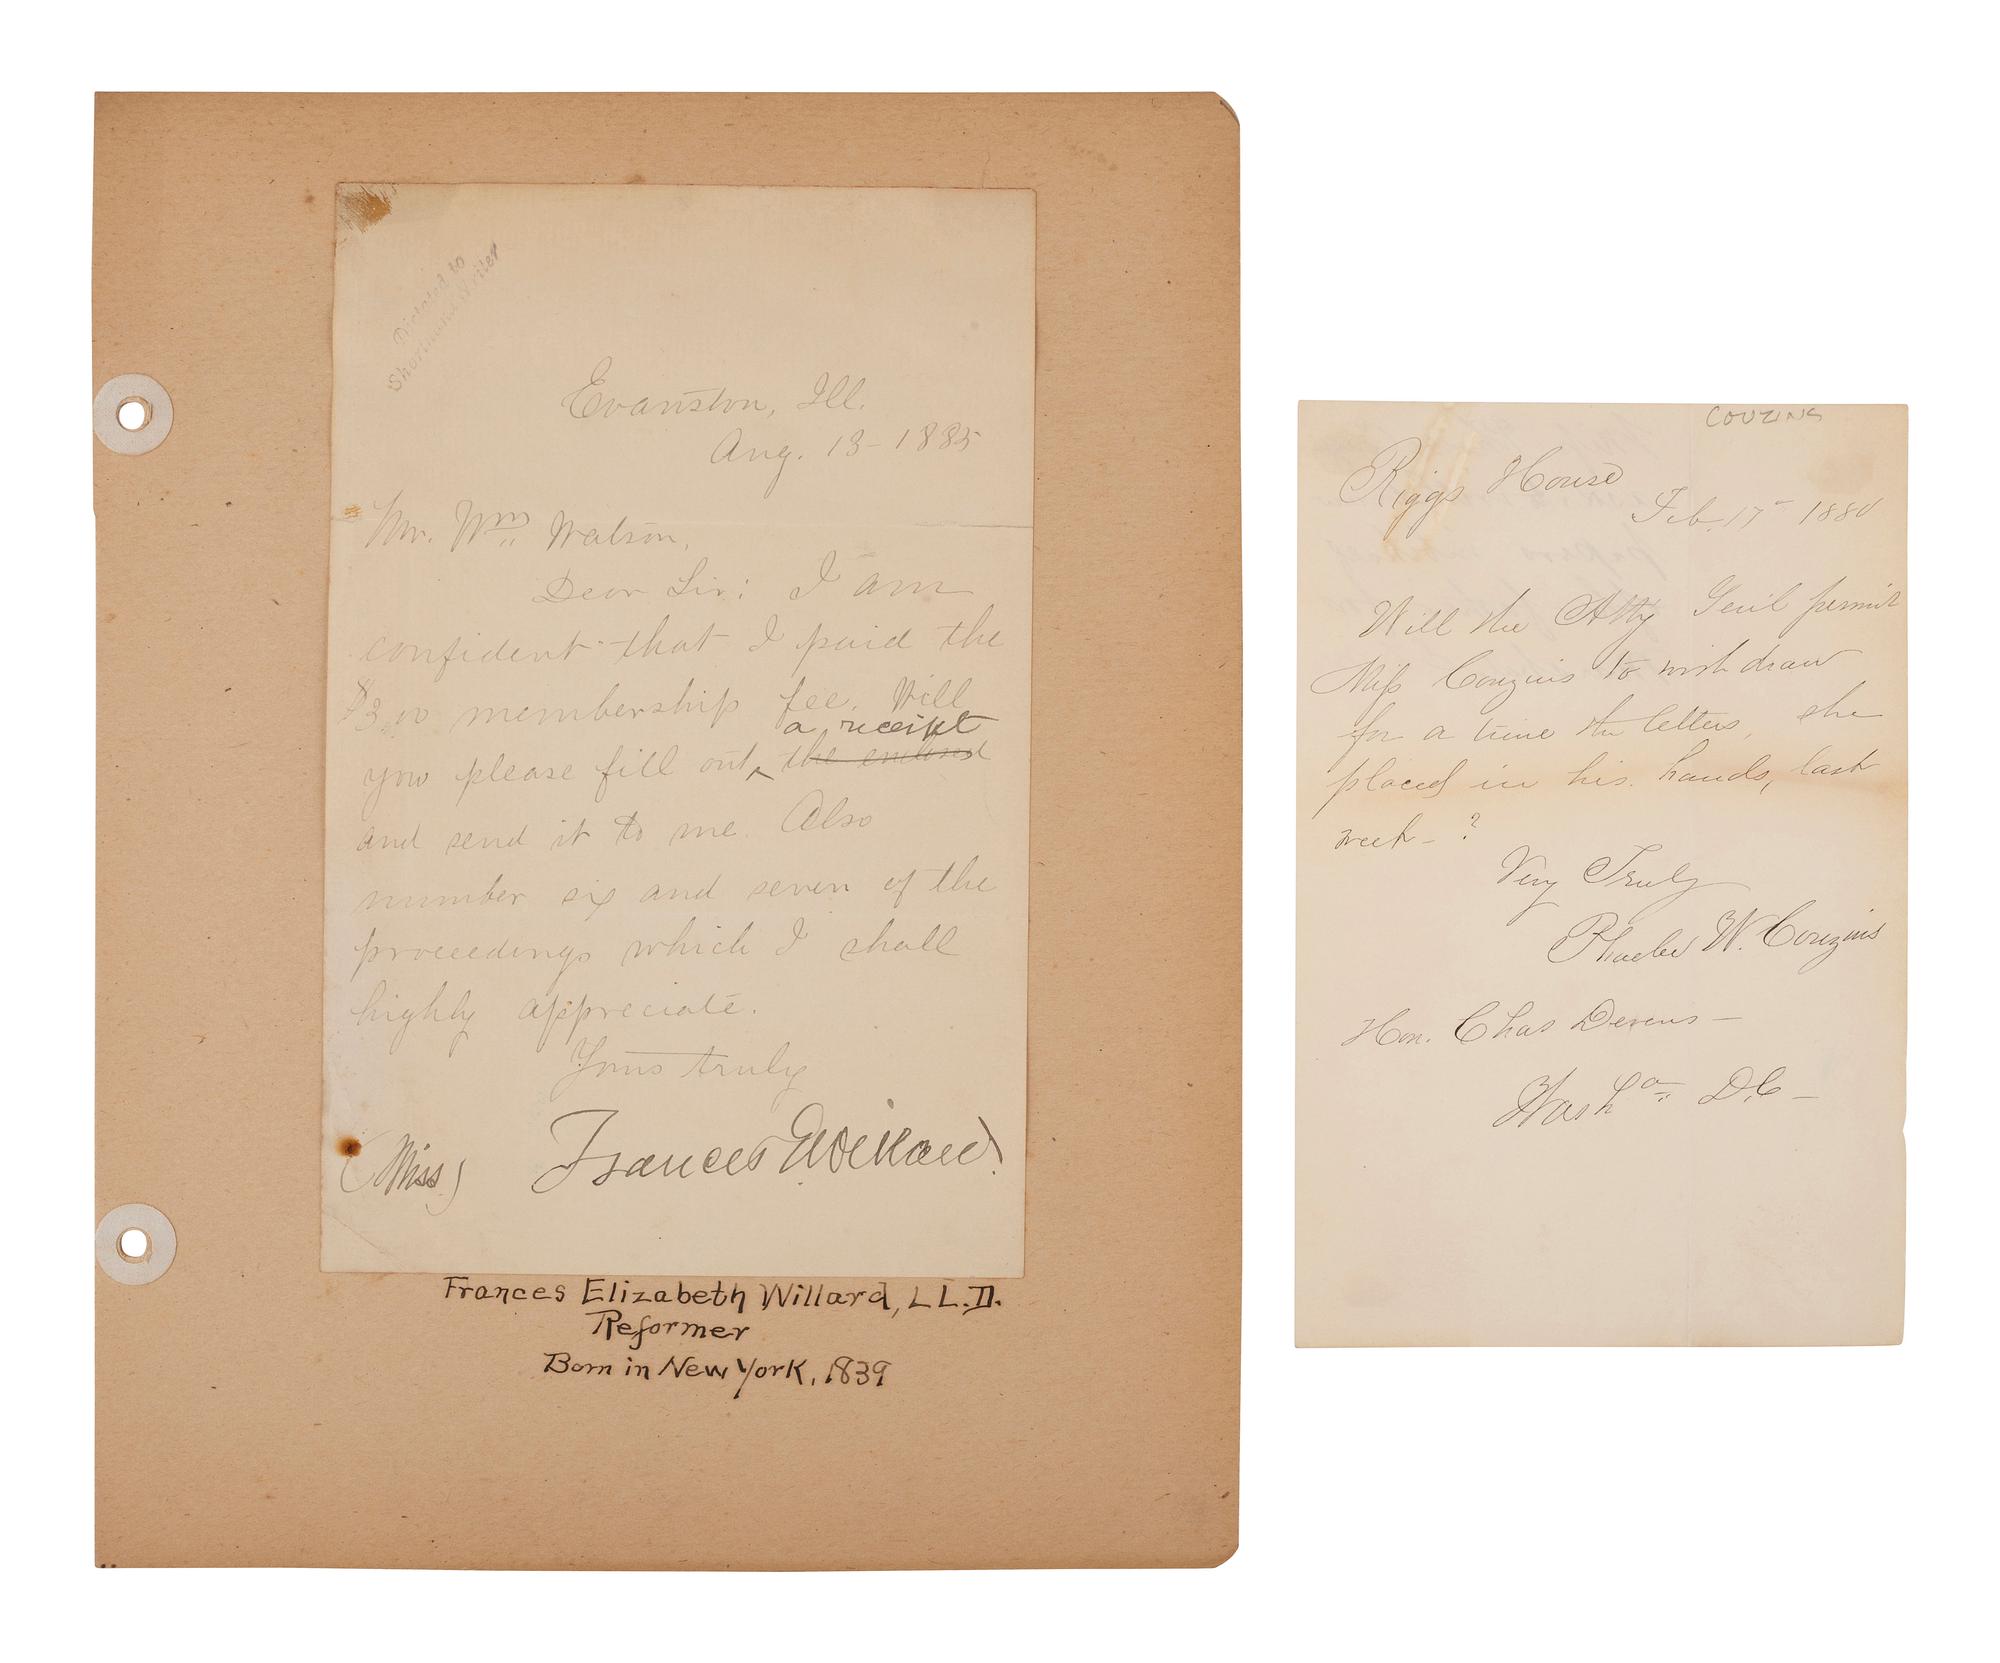 Dictated to
Shorthand Writer
Evanston, Ill.
Aug. 13- 1885
Mr. Wm. Watson,
Dear Sir: I am
confident that I paid the
$3.00 membership fee. Will
a receipt
you please fill out, ^ the enclosed
and send it to me. Also
number six and seven of the
proceedings which I shall
highly appreciate.
Yours truly
(Miss) Frances E. Willard.
Frances Elizabeth Willard, LL.D.
Reformer
Born in New York, 1839
COUZINS
Riggs House
Feb. 17- 1880
Will the Atty Genl permit
Miss Couzins to withdraw
for a time the letters, she
placed in his hands, last
week- ?
Very Truly
Phoebe W. Couzins
Hon. Chas Devens-
Washon D.C-